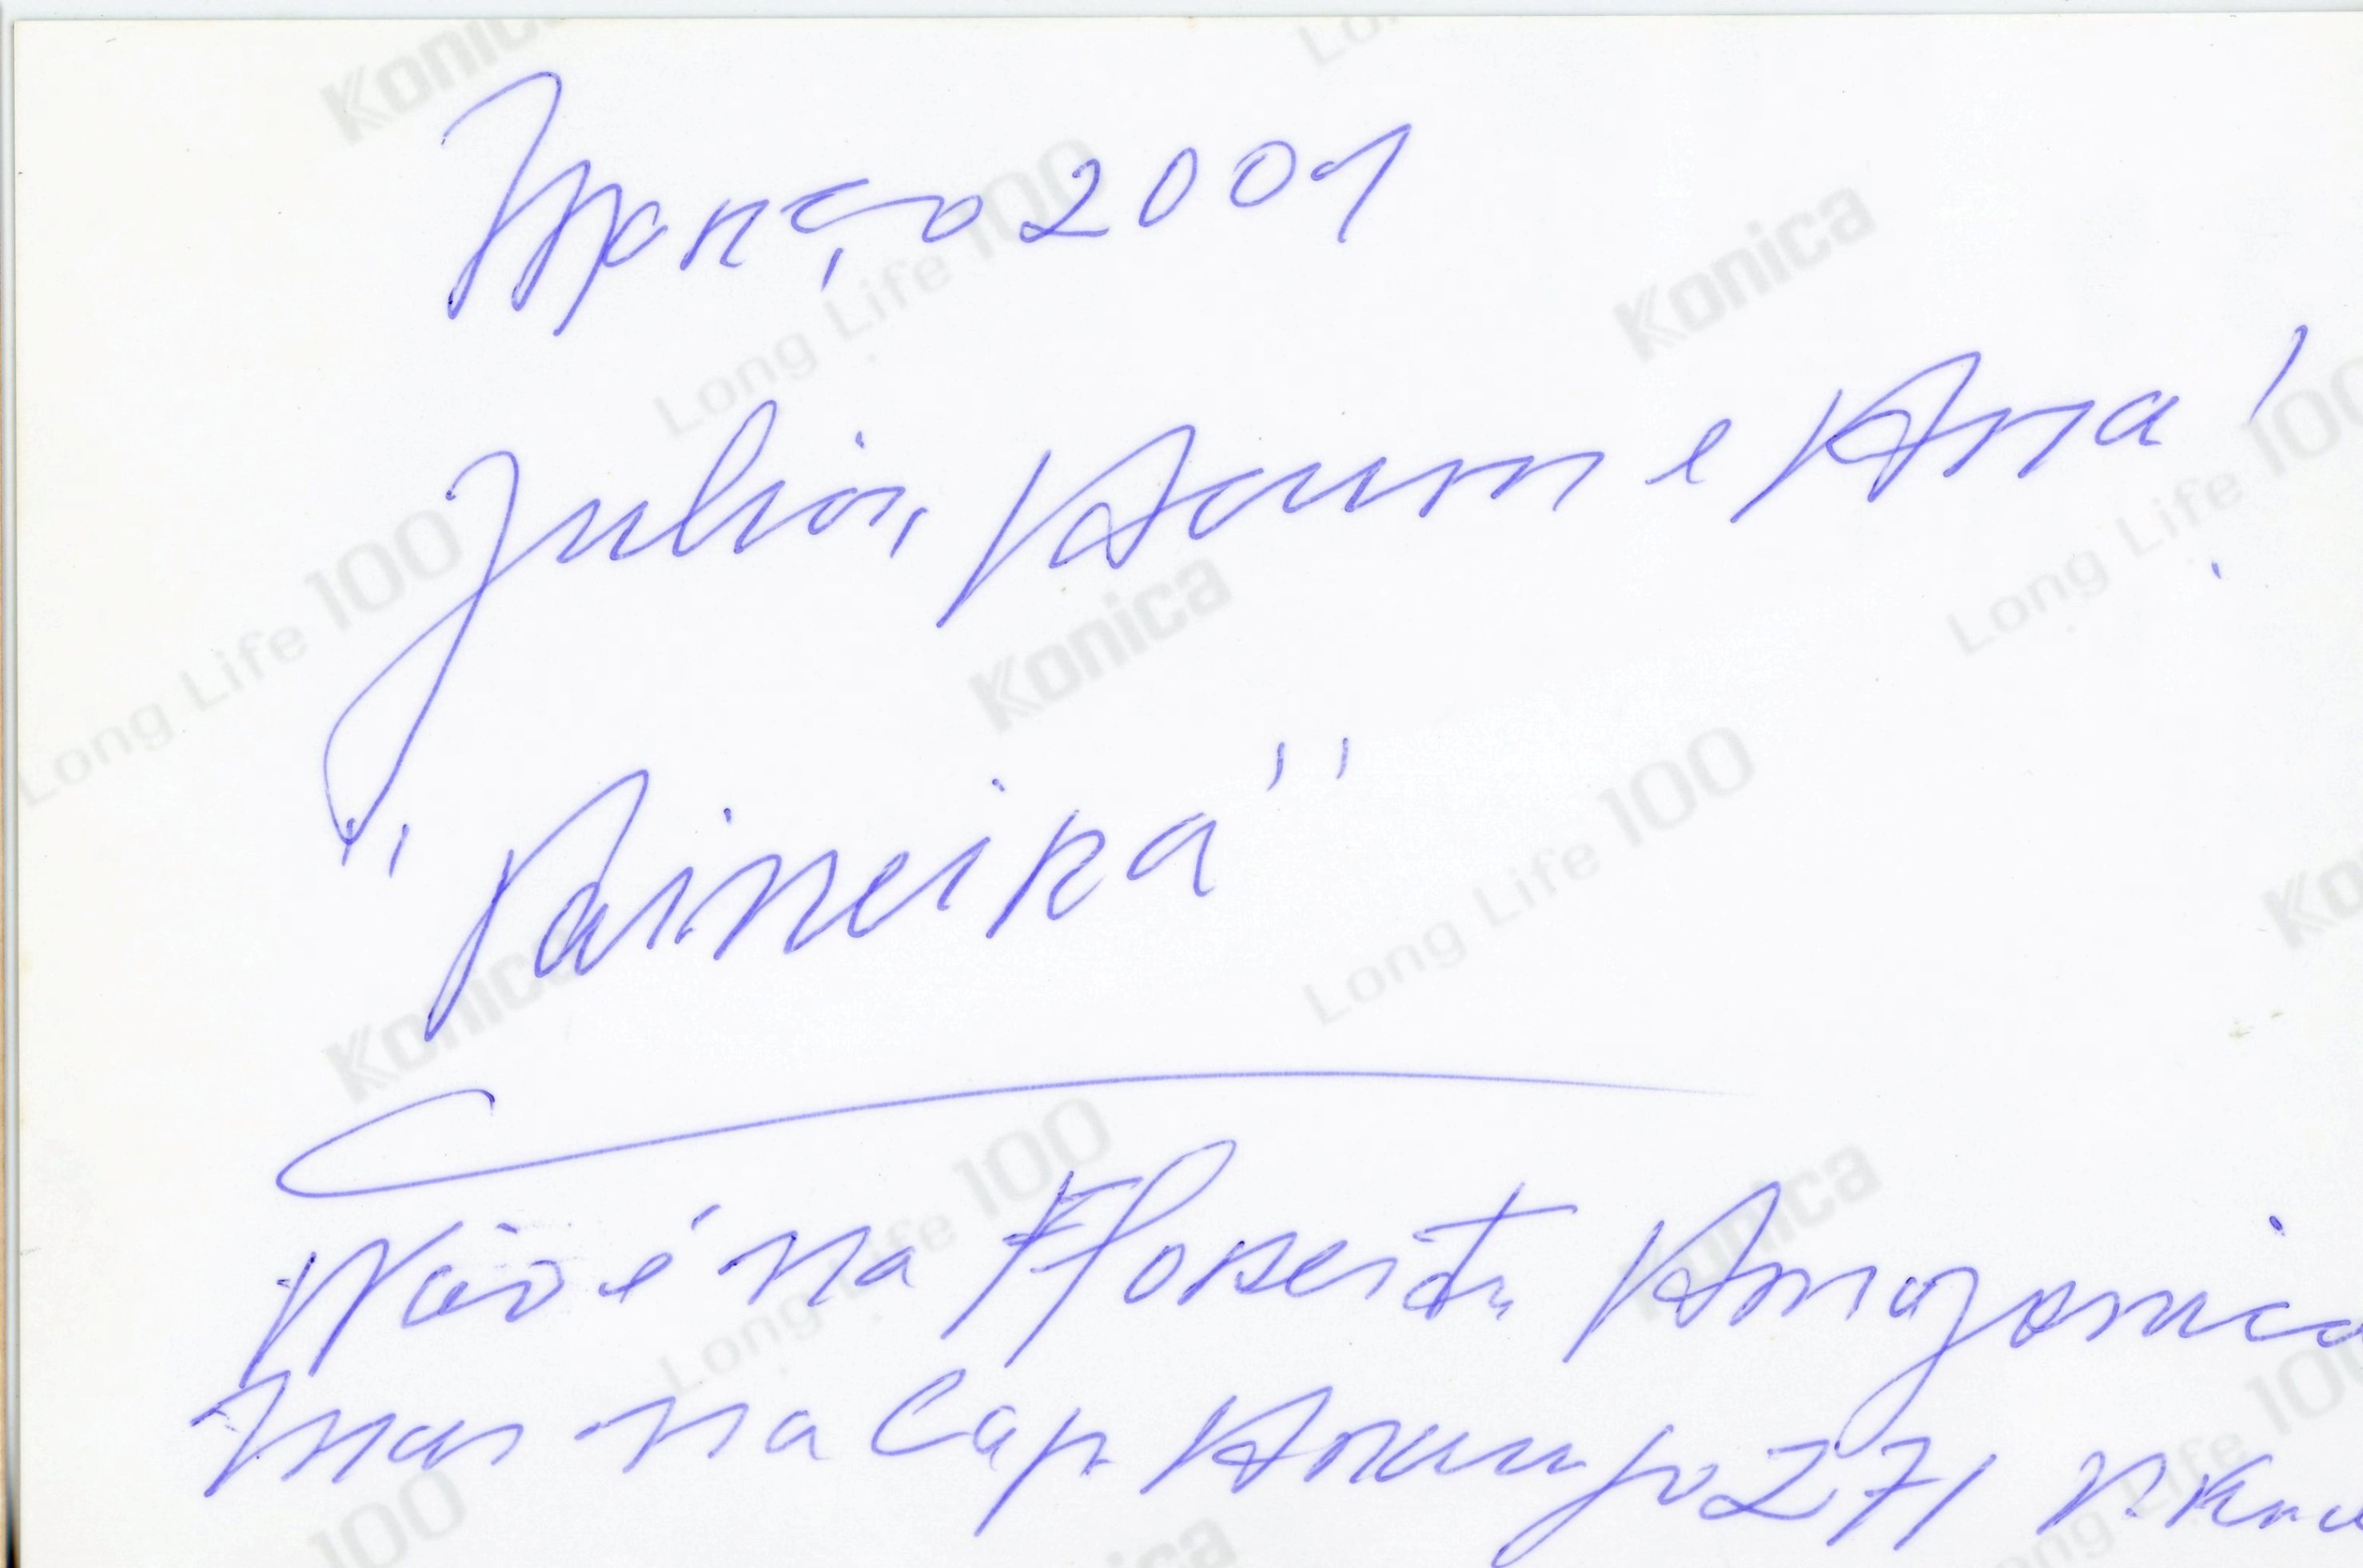 Março 2001
Julia, Acun e Ana!
"Paineira"
Não é na Floresta Amazonica
Mas na Cap Araujo 271
Konica
Long Life 100